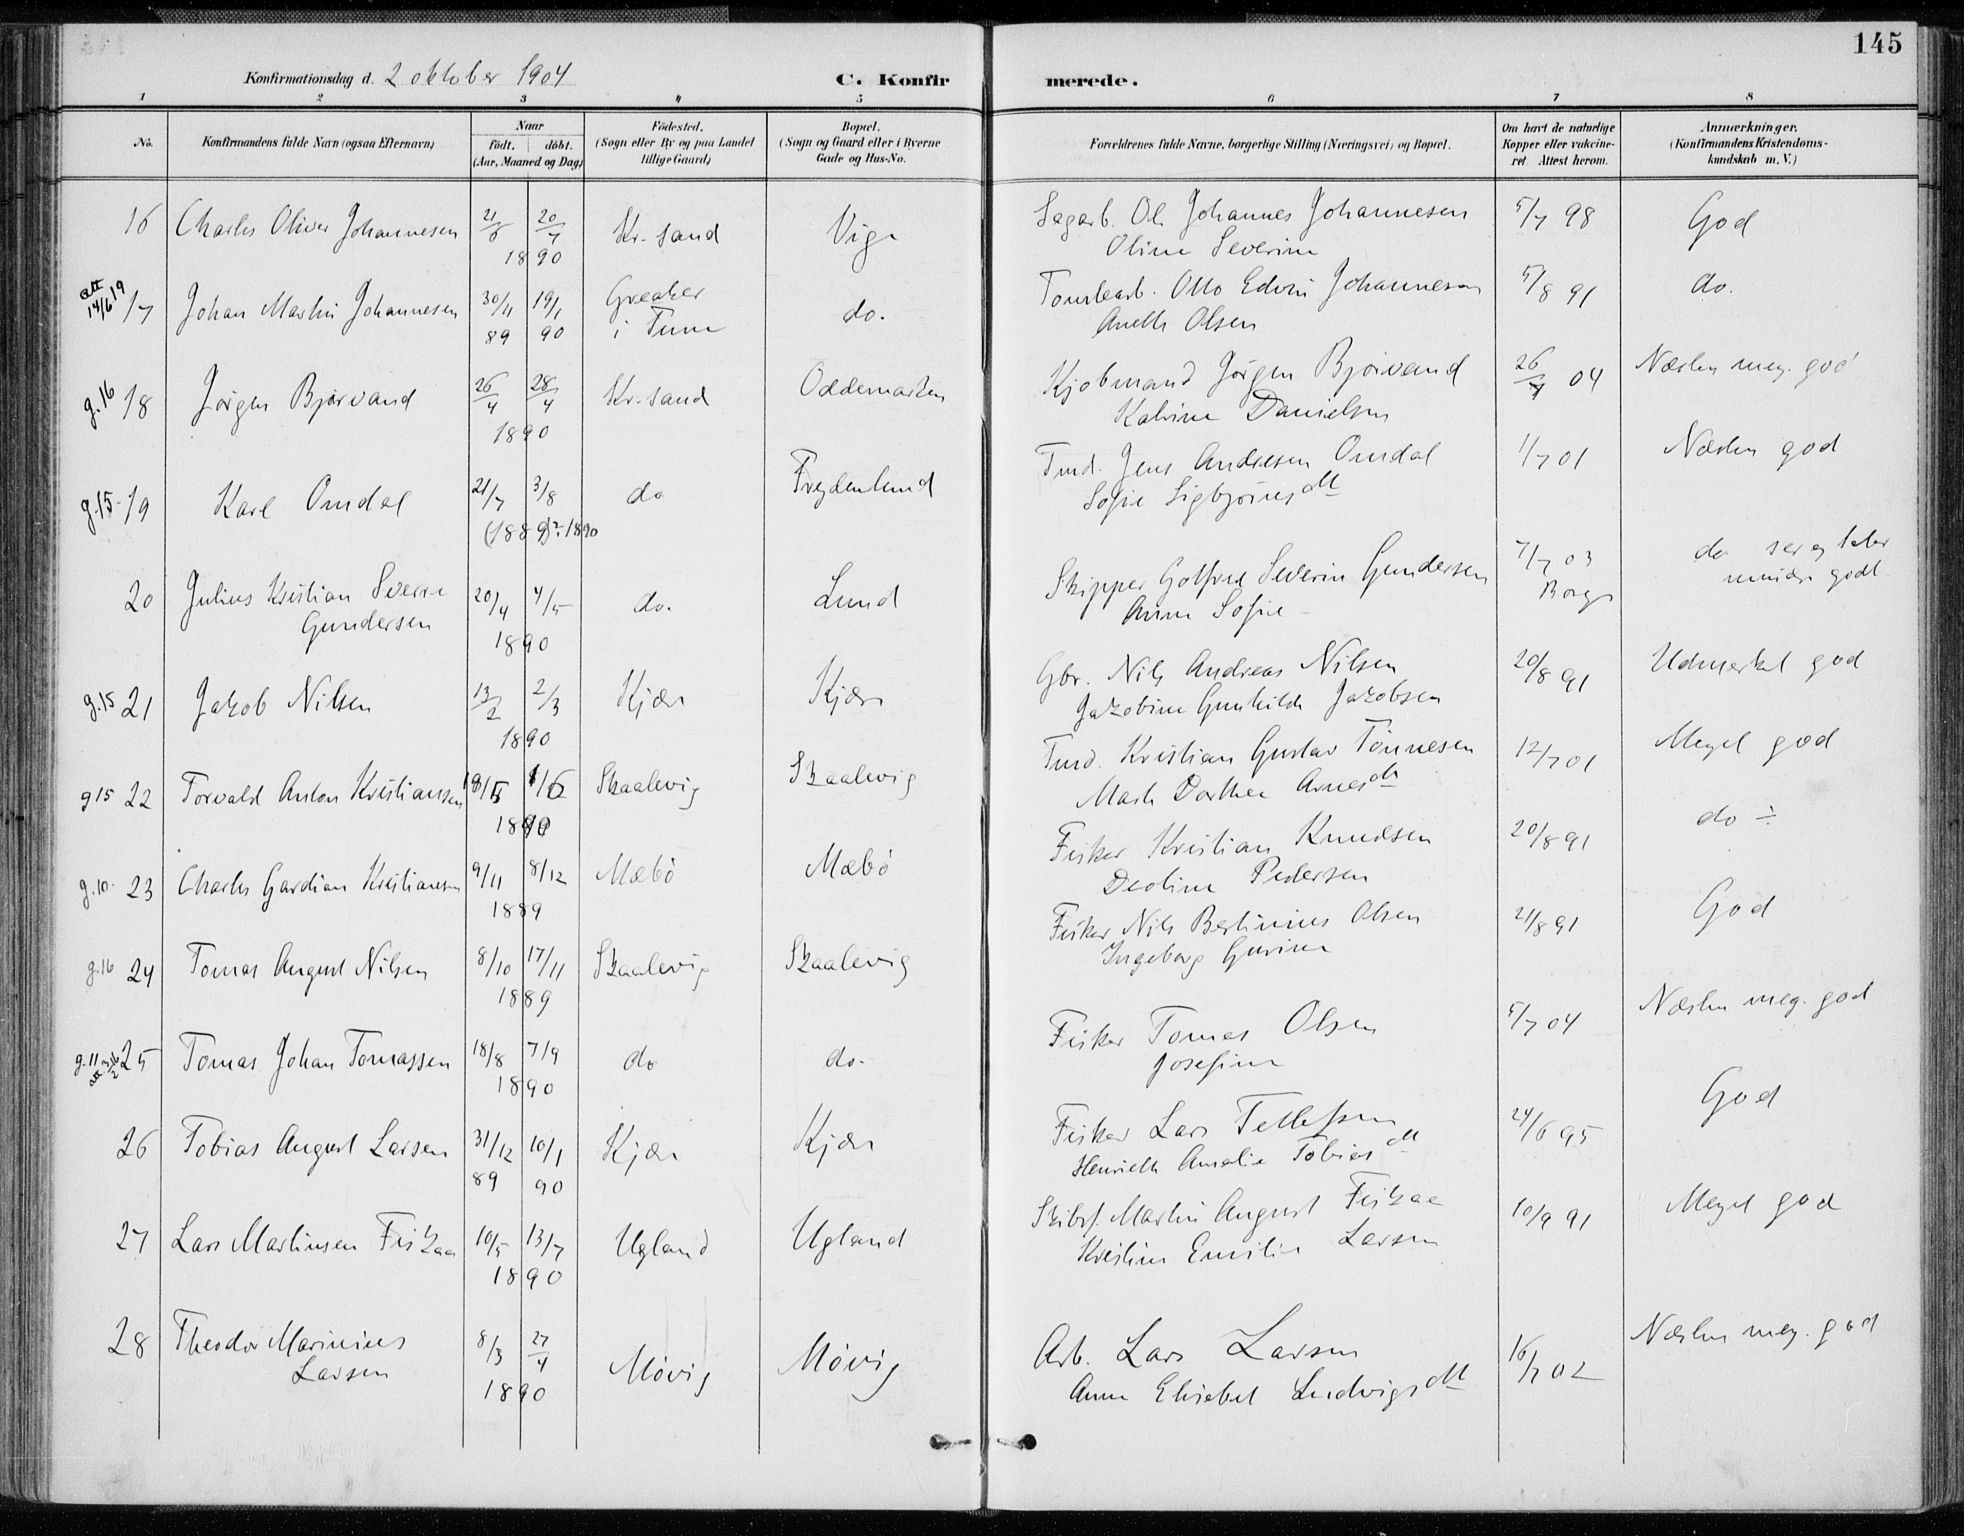 145
Konfirmationsdag d. 2 oktober 1904
C. Konfirmerede.
1 2 3 4 5 6 7 8
No. Konfirmandens fulde Navn (ogsaa Efternavn) Naar født. døbt. (Aar, Maaned og Dag) Fødested. (Sogn eller By og paa Landet tillige Gaard) Bopæl. (Sogn og Gaard eller i Byerne Gade og Hus-No. Forældrenes fulde Navne, borgerlige Stilling (Næringsvei) og Bopæl. Om havt de naturlige Kopper eller vakcineret Attest herom. Anmærkninger. (Konfirmandens Kristendomskundskab m. V.)
16 Charles Oliver Johannesen 21/6 20/7 1890 Kr. sand Vige Sagarb. Ole Johannes Johannesen 5/7 98 God
Oline Severine
att 14/6 19 17 Johan Martin Johannesen 30/11 89 19/1 90 Greaker i Tune do. Tomtearb. Otto Edvin Johannesen 5/8 91 do.
Anette Olsen
g.16 18 Jørgen Bjørvand 26/4 28/4 1890 Kr. sand Oddemarken Kjøbmand Jørgen Bjørvand 26/7 04 Næsten meg. god
Katrine Danielsen
g.15 19 Karl Omdal 21/7 3/8 (1889)?: 1890 do Frydenlund Tmd. Jens Andresen Omdal 1/7 01 Næsten god
Sofie Sigbjørnsdtt
20 Julius Kristian Sverre Gundersen 20/4 4/5 1890 do. Lund Skipper Gotfred Severin Gundersen 7/7 03 Borge do ser og taler mindre godt
Anne Sofie
g.15 21 Jakob Nilsen 13/2 2/3 1890 Kjær Kjær Gbr. Nils Andreas Nilsen 20/8 91 Udmerket god
Jakobine Gunhilde Jakobsen
g15 22 Torvald Anton Kristiansen 1890 Skaalevig Skaalevig Tmd. Kristian Gustav Tønnesen 12/7 01 Meget god
Marte Dorthea Arnesdtt
g.10. 23 Charles Gardian Kristiansen 9/11 8/12 1889 Mæbø Mæbø Fisker Kristian Knudsen 20/8 91 do ÷
Deoline Pedersen
g.16 24 Tomas August Nilsen 8/10 17/11 1889 Skaalevig Skaalevig Fisker Nils Bertinius Olsen 21/8 91 God
Ingeborg Gurine
g.11 25 Tomas Johan Tomassen 18/8 7/9 1890 do do. Fisker Tomas Olsen 5/7 04 Næsten meg. god
Josefine
26 Tobias August Larsen 31/12 89 10/1 90 Kjær Kjær Fisker Lars Tellefsen 24/6 95 God
Henriette Amalie Tobiasdtt
27 Lars Martinsen Fiskaa 10/5 13/7 1890 Ugland Ugland Skibsf. Martin August Fiskaa 10/9 91 Meget god
Kristine Emilie Larsen
28 Theodor Marinius Larsen 8/3 27/4 1890 Møvig Møvig Arb. Lars Larsen 16/7 02 Næsten meg. god
Anne Elisabet Ludvigsdtt